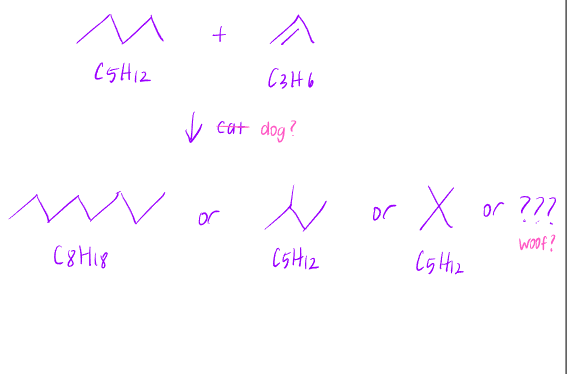 +
C5H12 C3H6
↓ cat dog?
or or or ???
C8H18 C5H12 C5H12 woof?